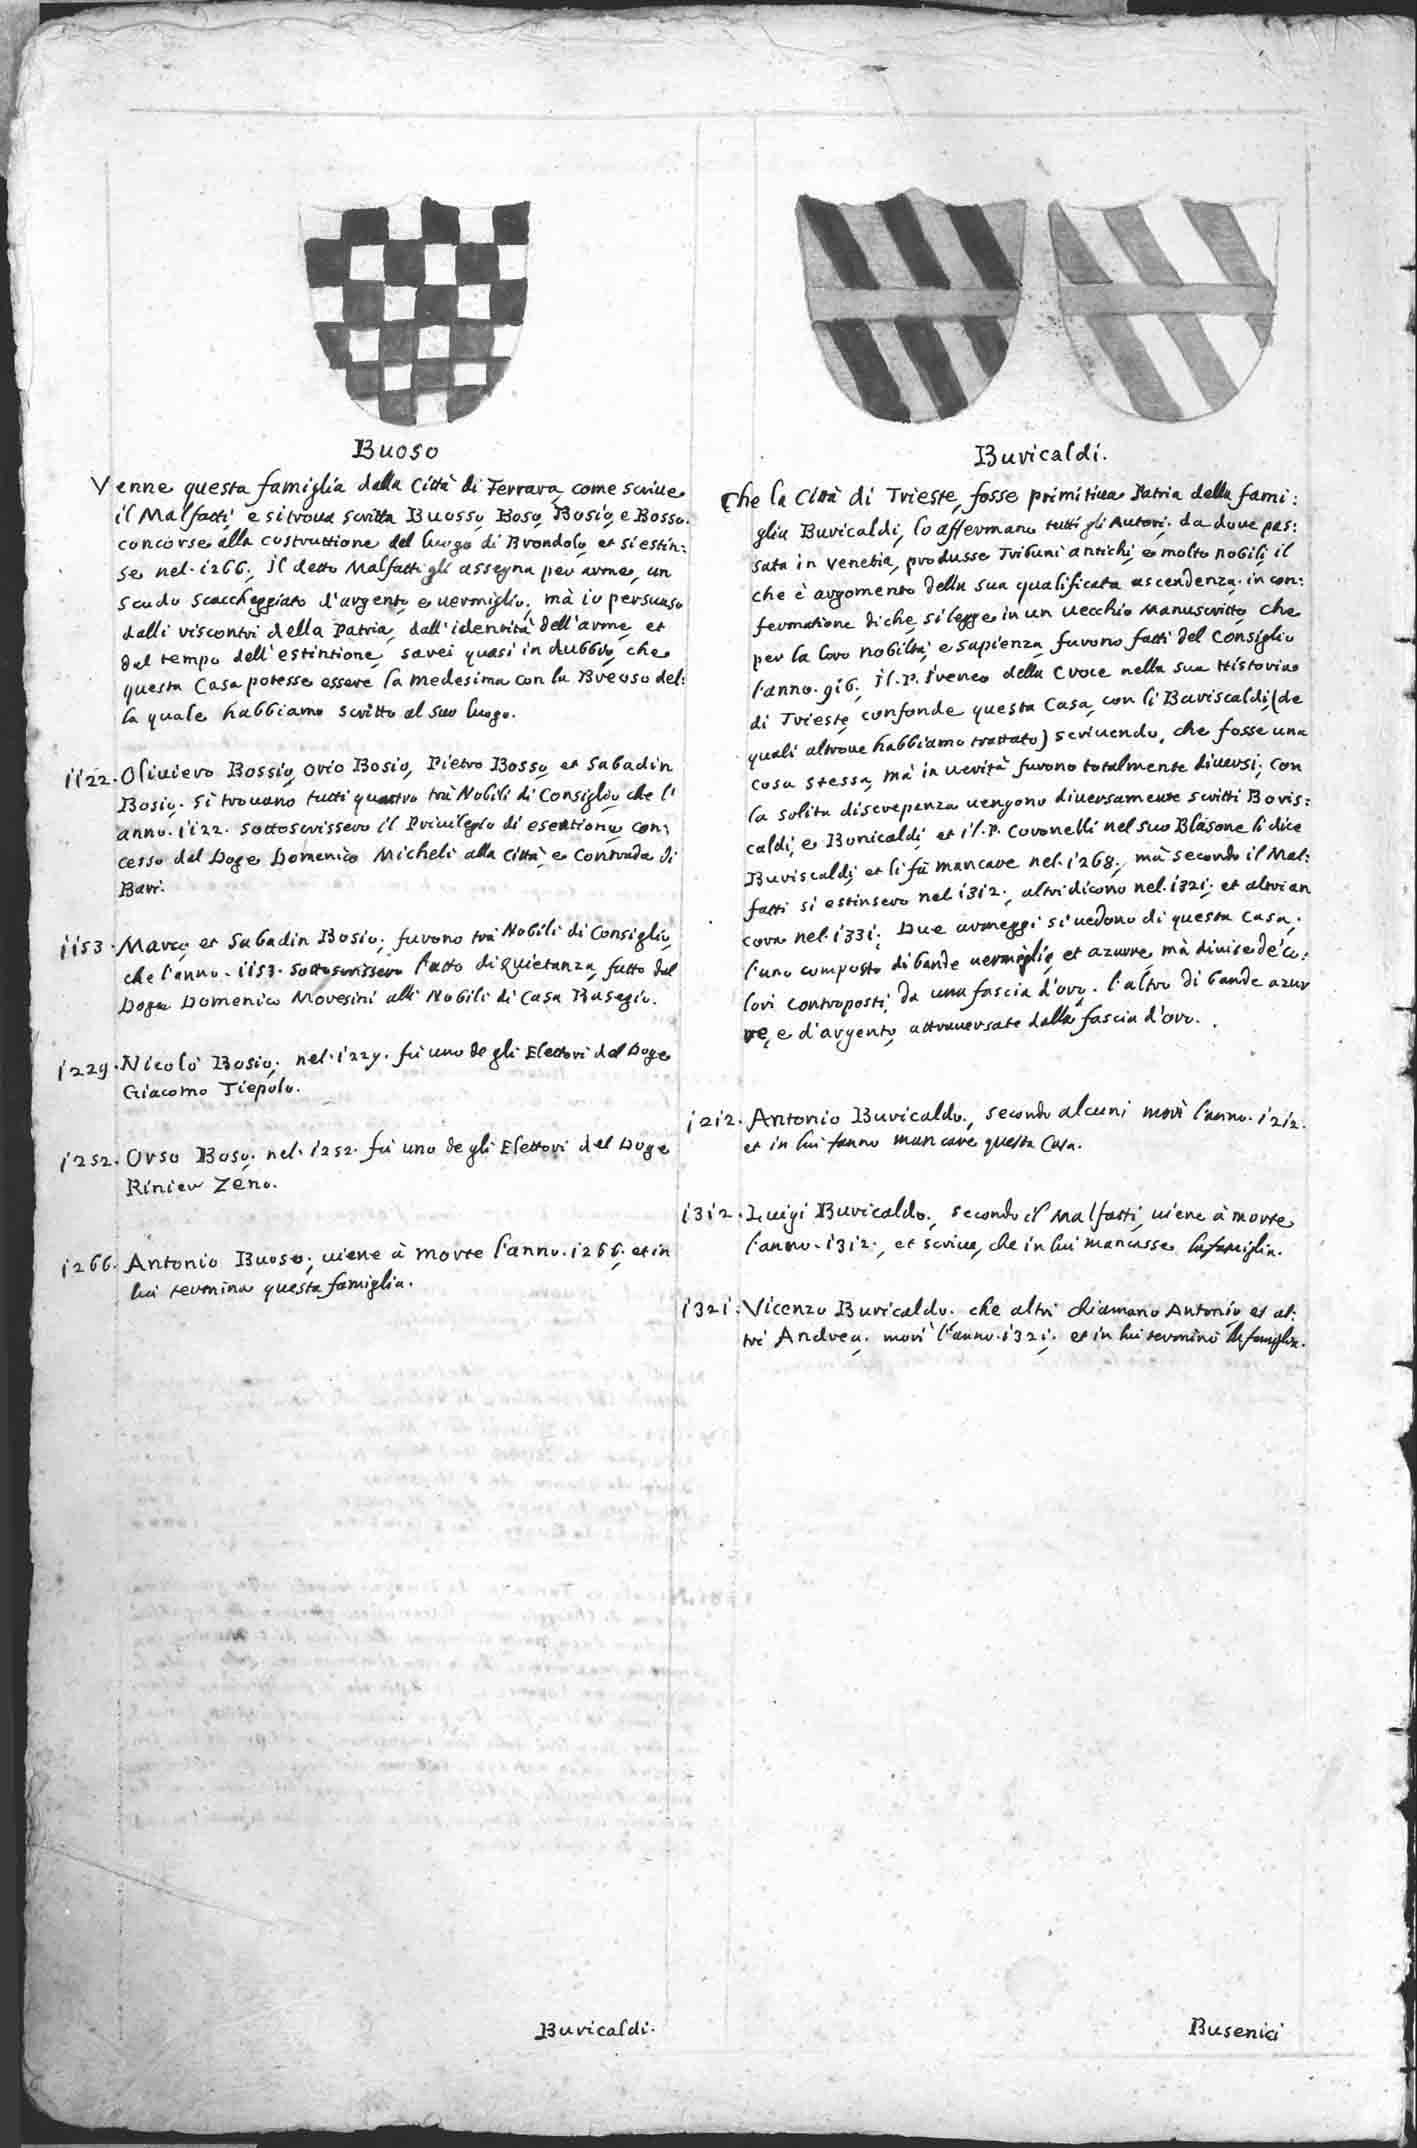 Buoso
Venne questa famiglia dalla Città di Ferrara, come scrive
il Malfatti, e si trova scritta Buosso, Boso, Bosio, e Bosso.
concorse alla costruttione del luogo di Brondolo, et si estin:
se nel. 1266., il detto Malfatti gli assegna per arme, un
scudo scaccheggiato d'argento e vermiglio. mà io persuaso
dalli riscontri della Patria, dall'identità dell'arme, et
dal tempo dell'estintione, sarei quasi in dubbio, che
questa Casa potesse essere la medesima con la Breoso del:
la quale habbiamo scritto al suo luogo.
1122. Oliviero Bossio, Orio Bosio, Pietro Bosso, et Sabadin
Bosio. si trovano tutti quattro trà Nobili di Consiglio, che l'
anno. 1122. sottoscrissero il Privilegio di esentione, con:
cesso dal Doge Domenico Micheli alla Città, e Contrada di
Bari.
1153. Marco, et Sabadin Bosio; furono trà Nobili di Consiglio,
che l'anno. 1153. sottoscrissero l'atto di quietanza, fatto dal
Doge Domenico Moresini alli Nobili di Casa Basegio.
1229. Nicolò Bosio; nel. 1229. fù uno de gli Elettori del Doge
Giacomo Tiepolo.
1252. Orso Boso; nel. 1252. fù uno de gli Elettori del Doge
Rinier Zeno.
1266. Antonio Buoso; viene à morte l'anno. 1266; et in
lui termina questa famiglia.
Buricaldi.
Buricaldi.
Che la Città di Trieste, fosse primitiva Patria della fami:
glia Buricaldi, lo affermano tutti gli Autori; da dove pas:
sata in Venetia, produsse Tribuni antichi, e molto nobili, il
che è argomento della sua qualificata ascendenza; in con:
fermatione di che, si legge in un vecchio Manuscritto, che
per la loro nobiltà, e sapienza, furono fatti del Consiglio
l'anno. 916. il. P. Ireneo della Croce nella sua Historia
di Trieste, confonde questa Casa, con li Bariscaldi, (de
quali altrove habbiamo trattato) scrivendo, che fosse una
cosa stessa, mà in verità furono totalmente diversi; con
la solita discrepenza vengono diversamente scritti Boris:
caldi, e Bonicaldi, et il. P. Coronelli nel suo Blasone li dice
Buriscaldi, et li fà mancare nel. 1268., mà secondo il Mal:
fatti si estinsero nel 1312., altri dicono nel. 1321; et altri an
cora nel. 1331; Due armeggi si vedono di questa Casa;
l'uno composto di bande vermiglie, et azurre, mà divise de' co:
lori controposti, da una fascia d'oro. l'altro di bande azur
re, e d'argento, attraversate dalla fascia d'oro.
1212. Antonio Buricaldo., secondo alcuni morì l'anno. 1212.
et in lui fanno mancare questa Casa.
1312. Luigi Buricaldo., secondo il Malfatti, viene à morte
l'anno. 1312., et scrive, che in lui mancasse la famiglia.
1321. Vicenzo Buricaldo. che altri chiamano Antonio, et al:
tri Andrea; morì l'anno. 1321; et in lui terminò la famiglia.
Busenici